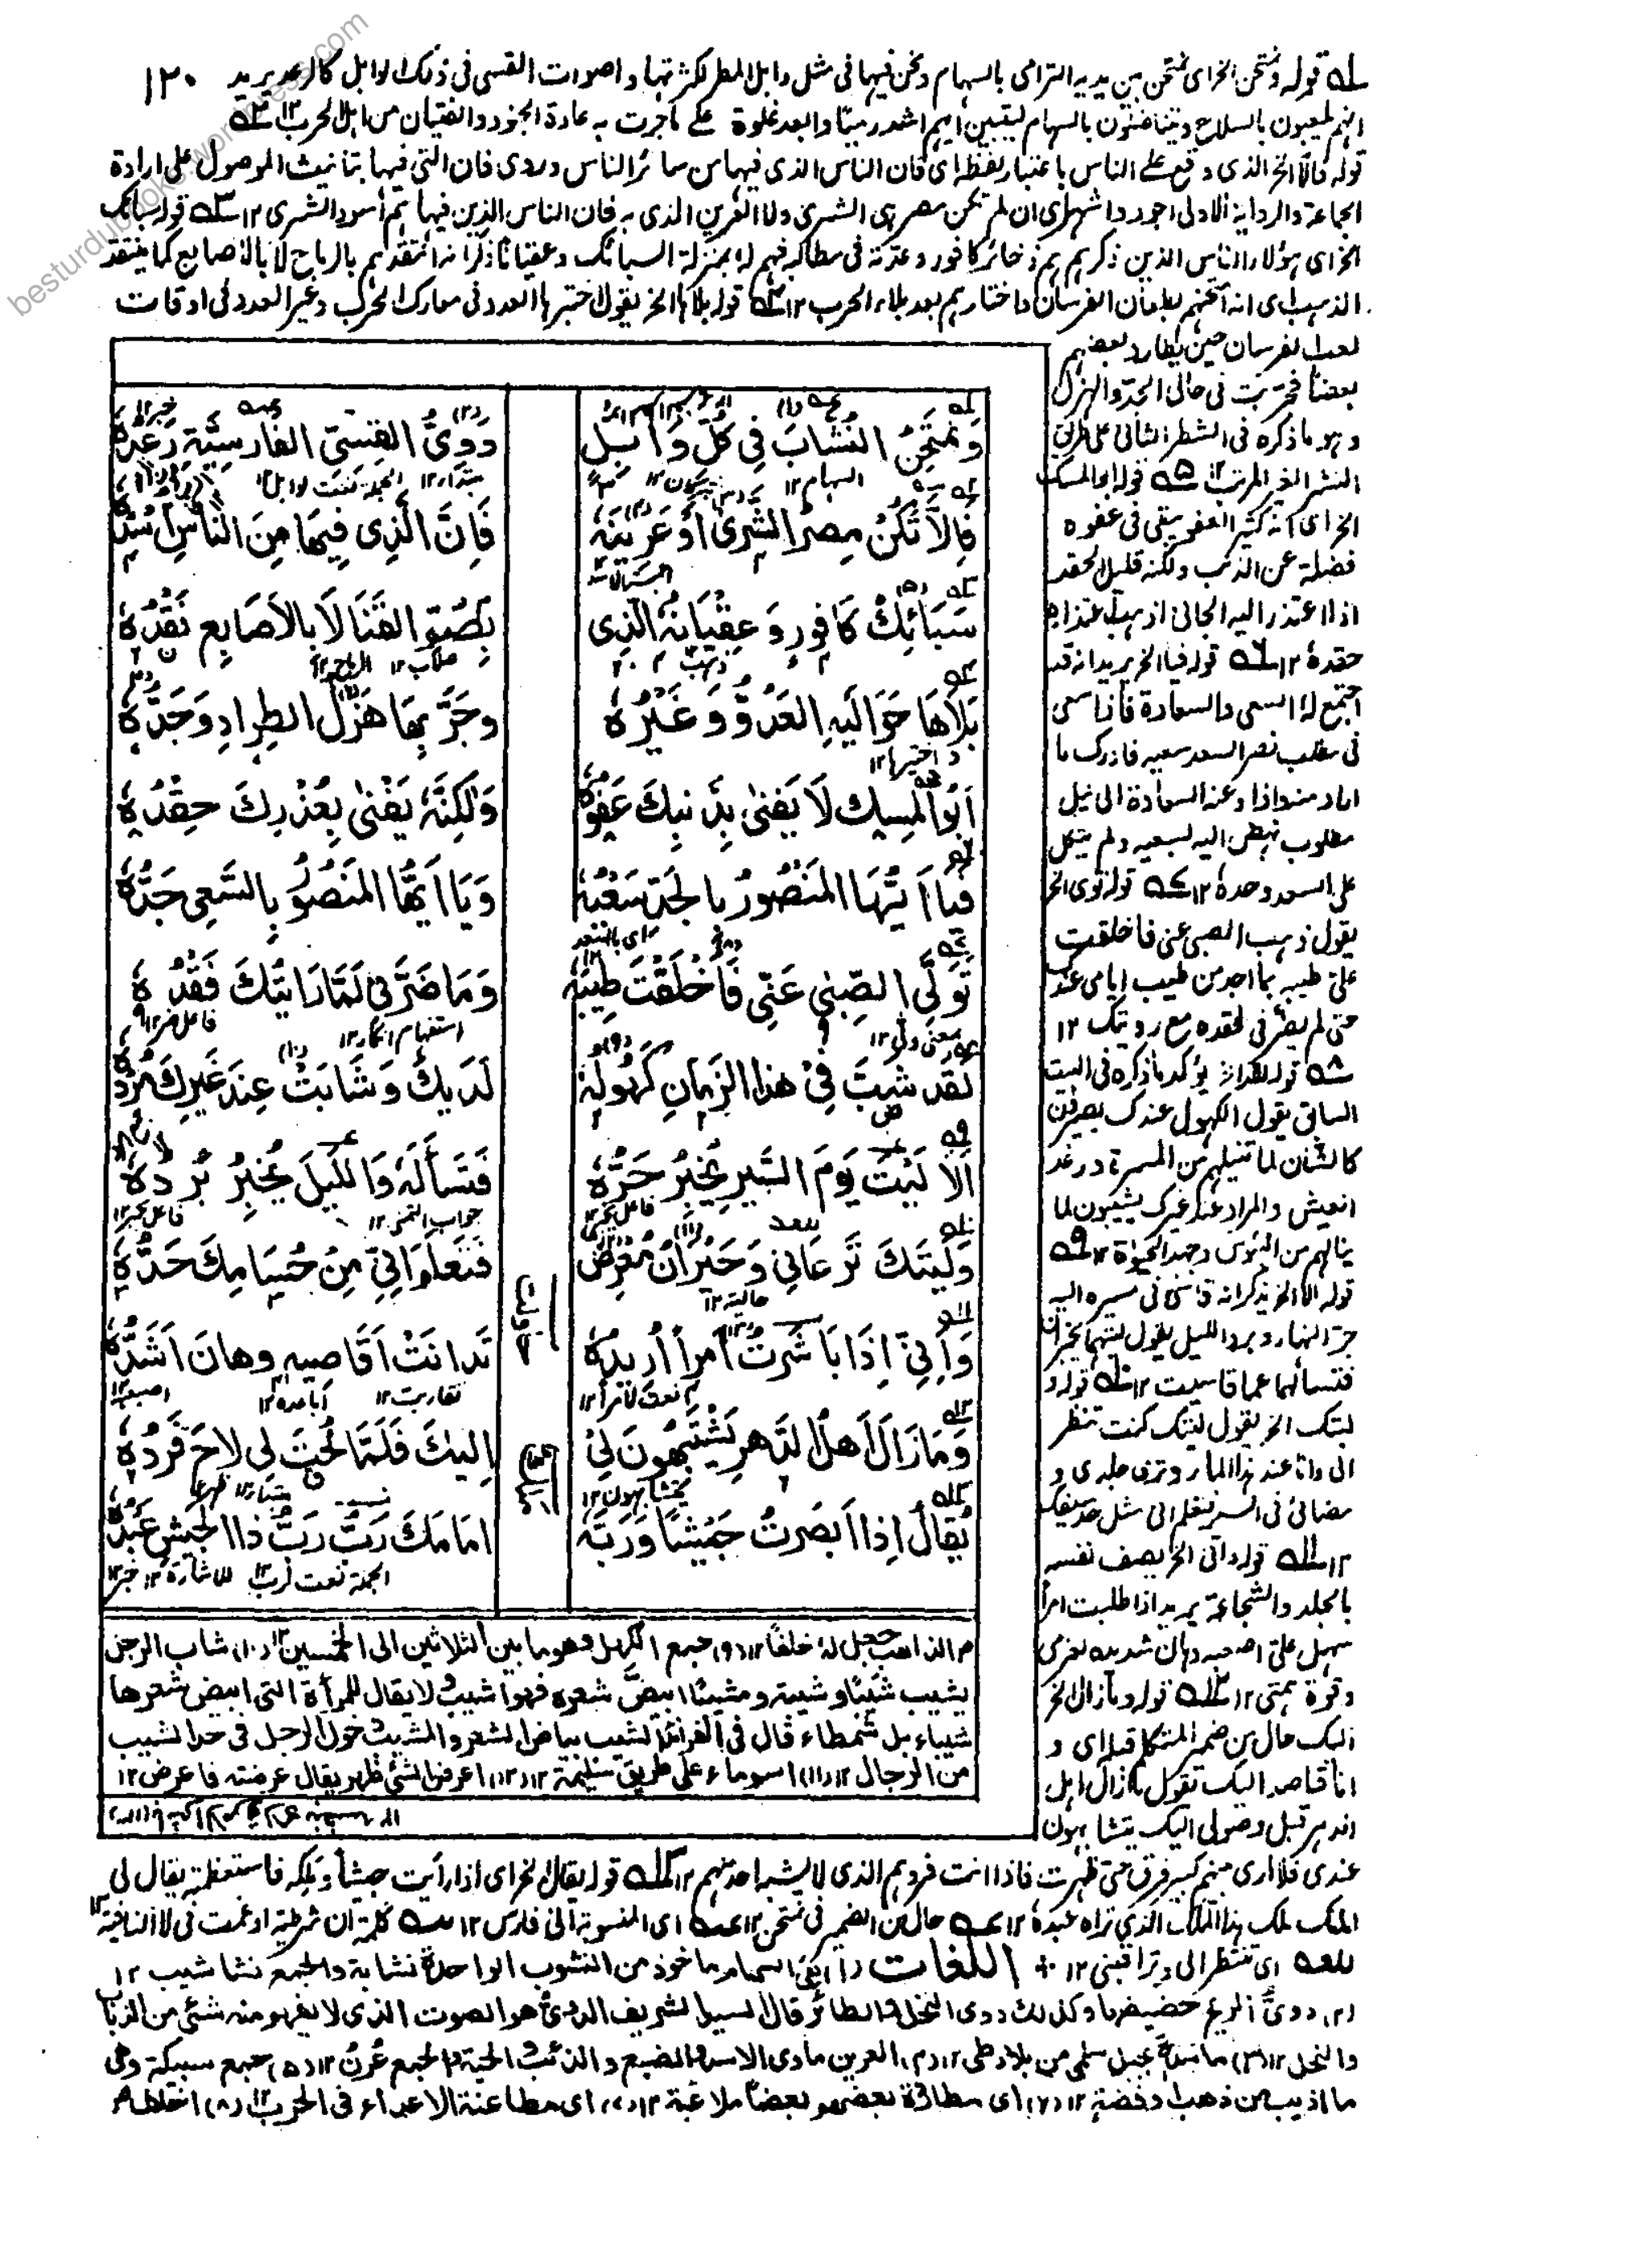 ١٢٠
له قوله ونمتحن الخ اى نمتحن بين يديه الترامى بالسهام ونحن فيها فى مثل وابل المطر لكثرتها واصوات القسى فى ذلك الوابل كالرعد يريد
انهم يلعبون بالسلاح ويتناضلون بالسهام ليتبين ايهم اشد رميا وابعد غلوة على ما جرت به عادة الجنود والفتيان من اهل الحرب ١٢
قوله فالا الخ الذى وقع على الناس باعتبار لفظه اى فان الناس الذى فيها من سائر الناس وروى فان التى فيها بتانيث الموصول على ارادة
الجماعة والرواية الاولى اجود واشهر اى ان لم تكن مصر هى الشرى ولا العرين الذى به فان الناس الذين فيها هم اسود الشرى ١٢ قوله سبائك
الخ اى هؤلاء الناس الذين ذكرهم هم ذخائر كافور وعدته فى مطالبه فهم له بمنزلة السبائك وعقيانا ذكر انه انتقدهم بالرماح لا بالاصابع كما ينتقد
الذهب اى انه امتحنهم بطعان الفرسان واختارهم بعد بلاء الحرب ١٢ قوله بلاها الخ يقول اختبرها العدو فى معارك الحرب وغير العدو فى اوقات
لعب الفرسان حين يطارد بعضهم
بعضا فجربت فى حالى الجد والهزل
وهو ما ذكره فى الشطر الثانى على طريق
النشر الغير المرتب ١٢ قوله ابو المسك
الخ اى انه كثير العفو يبقى فى عفوه
فضلة عن الذنب ولكنه قليل الحقد
اذا اعتذر اليه الجانى اذهب اعتذاره
حقده ١٢ قوله فيا الخ يريد انه قد
اجتمع له السعى والسعادة فاذا سعى
فى مطلب نصر السعد سعيه فادرك ما
اراد منه واذا دعته السعادة الى نيل
مطلوب نهض اليه بسعيه ولم يتكل
على السعد وحده ١٢ قوله تولى الخ
يقول ذهب الصبى عنى فاخلفت
على طيبه بما اجد من طيب ايامى عندك
حتى لم يضرنى فقده مع رويتك ١٢
قوله لقد الخ يؤكد ما ذكره فى البيت
السابق يقول الكهول عندك يصيرون
كالشبان لما تنيلهم من المسرة ورغد
العيش والمراد عند غيرك يشيبون لما
ينالهم من البؤس وجهد الحيوة ١٢
قوله الا الخ يذكر انه قاسى فى مسيره اليه
حر النهار وبرد الليل يقول ليتهما يخبران
فتسألهما عما قاسيت ١٢ قوله و
ليتك الخ يقول ليتك كنت تنظر
الى وانا عند هذا الماء وترى جلدى و
مضائى فى السير فتعلم انى مثل حد سيفك
١٢ قوله وانى الخ يصف نفسه
بالجلد والشجاعة يريد اذا طلبت امرا
سهل على اصعبه وهان شديده لعزمى
وقوة همتى ١٢ قوله وما زال الخ
اليك حال من ضمير المتكلم قبله اى و
انا قاصد اليك تقول ما زال اهل
الدهر قبل وصولى اليك يتشابهون
وَنَمْتَحِنُ النُشَّابَ فِي كُلِّ وَابِلٍ
دَوِيُّ القِسِيِّ الفَارِسِيَّةِ رَعْدُهٗ
فَإِلَّا تَكُنْ مِصْرُ الشَّرىٰ أَوْ عَرِينَهٗ
فَإِنَّ الَّذِي فِيهَا مِنَ النَّاسِ أُسْدُهٗ
سَبَائِكُ كَافُورٍ وَعِقْيَانُهُ الَّذِى
بِصُمِّ القَنَا لَا بِالأَصَابِعِ نَقْدُهٗ
بَلَاهَا حَوَالَيْهِ العَدُوُّ وَغَيْرُهٗ
وجَرَّبَهَا هَزْلُ الطِرادِ وَجَدُّهٗ
أَبُو المِسْكِ لَا يَفنىٰ بِذَنْبِكَ عَفْوُهٗ
وَلٰكِنَّهٗ يَفْنىٰ بِعُذْرِكَ حِقْدُهٗ
فَيَا أَيُّهَا المَنْصُورُ بِالجَدِّ سَعْيُهٗ
وَيَا أَيُّهَا المَنْصُورُ بِالسَّعْيِ جَدُّهٗ
تَوَلَّى الصِّبىٰ عَنِّي فَأَخْلَفْتَ طِيبَهٗ
وَمَا ضَرَّنِي لَمَّا رَأَيْتُكَ فَقْدُهٗ
لَقَد شَبَّ فِيْ هٰذَا الزَّمَانِ كُهُولُهٗ
لَدَيكَ وَشَابَتْ عِنْدَ غَيرِكَ مُرْدُهٗ
أَلَا لَيْتَ يَوْمَ السَّيْرِ يُخْبِرُ حَرُّهٗ
فَتَسْأَلَهٗ وَاللَّيلَ يُخْبِرُ بَرْدُهٗ
وَلَيْتَكَ تَرْعَانِي وَحَيْرَانُ مُعْرِضٌ
فَتَعْلَمَ أَنِّي مِنْ حُسَامِكَ حَدُّهٗ
وَأَنِّي إِذَا بَاشَرْتُ أَمراً أُرِيدُهٗ
تَدَانَتْ أَقَاصِيهِ وهَانَ أَشَدُّهٗ
وَمَا زَالَ أَهلُ الدَّهرِ يَشْتَبِهُونَ لِيْ
إِلَيكَ فَلَمَّا لُحْتَ لِي لاحَ فَرْدُهٗ
يُقَالُ إِذَا أَبصَرتُ جَيْشًا وَرَبَّهٗ
أَمَامَكَ رَبٌّ رَبُّ ذا الجَيْشِ عَبْدُهٗ
م الذاهب جعل له خلفا ١٢ (٩) جمع الكهل وهو ما بين الثلاثين الى الخمسين ١٢ (١٠) شاب الرجل
يشيب شيبا وشيبة ومشيبا ابيض شعره فهو اشيب ولا يقال للمرأة التى ابيض شعرها
شيباء بل شمطاء قال فى الفرائد الشيب بياض الشعر والمشيب دخول الرجل فى حد الشيب
من الرجال ١٢ (١١) اسم ماء على طريق سليمة ١٢ (١٢) اعرض الشئ ظهر يقال عرضته فاعرض ١٢
عندى فلا ارى منهم كبير فرق حتى ظهرت فاذا انت فردهم الذى لا يشبه احد منهم ١٢ قوله يقال الخ اى اذا رأيت جيشا وملكه فاستعظمته يقال لى
الملك ملك هذا الملك الذى تراه عبده ١٢ حال من الضمير فى نمتحن ١٢ اى المنسوبة الى فارس ١٢ كلمة ان شرطية ادغمت فى لا النافية ١٢
اى تنتظر الى وتراقبنى ١٢ اللغات (١) اى السهام ماخوذ من النشوب الواحدة نشابة والجمع نشاشيب ١٢
(٢) دوى الريح حفيفها وكذلك دوى النحل والطائر قال السيد الشريف الدوى هو الصوت الذى لا يفهم منه شئ من الذباب
والنحل ١٢ (٣) مأسدة بجبل سلمى من بلاد طى ١٢ (٤) العرين مأوى الاسد والضبع والذئب والحية والجمع عُرُنٌ ١٢ (٥) جمع سبيكة وهى
ما اذيب من ذهب او فضة ١٢ (٦) اى مطاردة بعضهم بعضا ملاعبة ١٢ (٧) اى مطاعنة الاعداء فى الحرب ١٢ (٨) اخلف
besturdubooks.wordpress.com